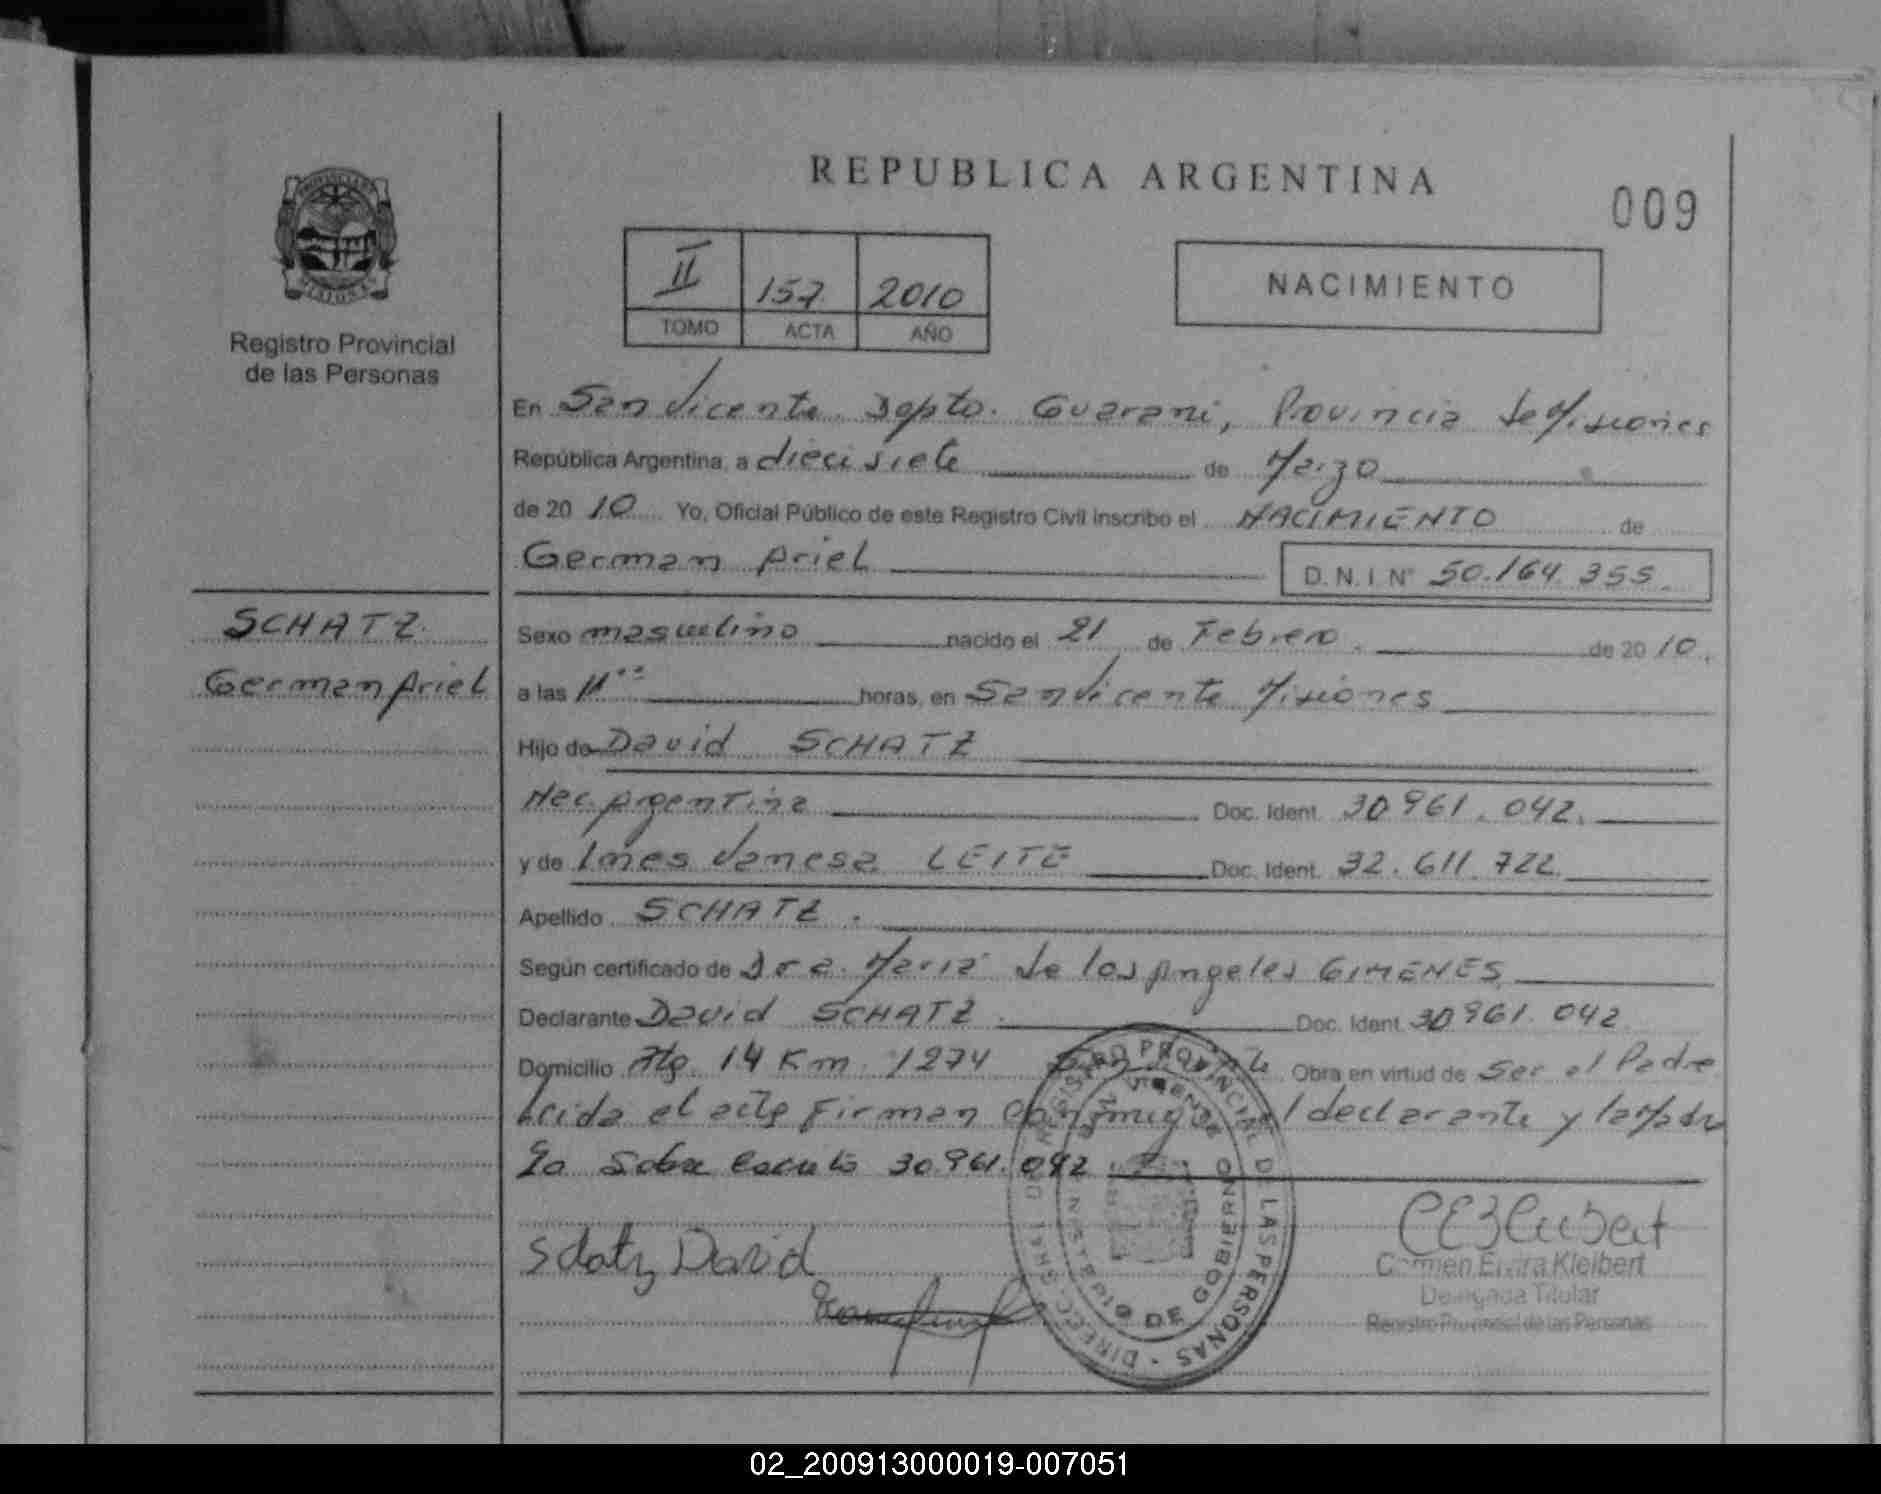 REPUBLICA ARGENTINA
009
PROVINCIA DE
MISIONES
Registro Provincial
de las Personas
II 157 2010
TOMO ACTA AÑO
NACIMIENTO
En San Vicente Dpto. Guarani, Provincia de Misiones
República Argentina, a diecisiete de Marzo
de 2010 Yo, Oficial Público de este Registro Civil inscribo el NACIMIENTO de
German Ariel D.N.I Nº 50.164.355.
SCHATZ
German Ariel
Sexo masculino nacido el 21 de Febrero. de 2010.
a las 11 horas, en San Vicente Misiones
Hijo de David SCHATZ
Nac. Argentina Doc. Ident. 30961.042.
y de Ines Vanesa LEITE Doc. Ident. 32.611.722.
Apellido SCHATZ.
Según certificado de Dra. Maria de los Angeles GIMENES
Declarante David SCHATZ. Doc. Ident. 30961.042
Domicilio 14 Km. 1274 Obra en virtud de Ser el Padre
el acta Firman conmigo el declarante y la Madre
So Sobre 30.961.042
Schatz David
Carmen Elvira Kleibert
Delegada Titular
Registro Provincial de las Personas
DIRECC. GRAL. DEL REGISTRO PROVINCIAL DE LAS PERSONAS
MINISTERIO DE GOBIERNO
SAN VICENTE
02_200913000019-007051